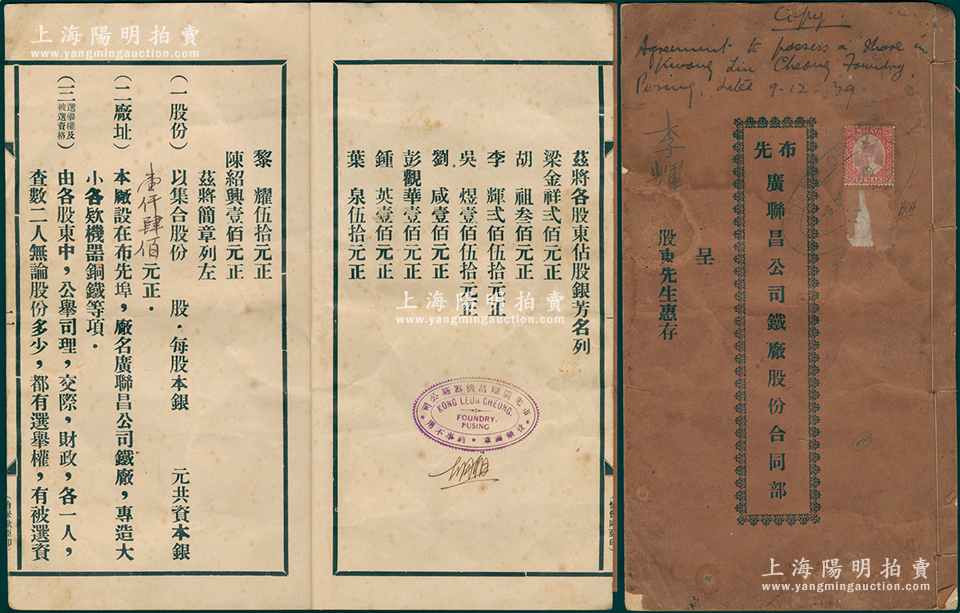 上海陽明拍賣
www.yangmingauction.com
Copy.
Agreement to possess a share in
Kwong Lin Cheong Foundry,
Pusing, dated 9-12-39
李輝
MALAYA
布先
廣聯昌公司鐵廠股份合同部
呈
股東先生惠存
上海陽明拍賣
www.yangmingauction.com
茲將各股東佔股銀芳名列
梁金祥弍佰元正
胡　祖叁佰元正
李　輝弍佰伍拾元正
吳　煜壹佰伍拾元正
劉　咸壹佰元正
彭觀華壹佰元正
鍾　英壹佰元正
葉　泉伍拾元正
KONG LEUN CHEONG.
FOUNDRY.
PUSING
上海陽明拍賣
www.yangmingauction.com
黎　耀伍拾元正
陳紹興壹佰元正
茲將簡章列左
（一股份）　以集合股份　股．每股本銀　元共資本銀
壹仟肆佰元正．
（二廠址）　本廠設在布先埠，廠名廣聯昌公司鐵廠，專造大
小各欵機器銅鐵等項．
（三選舉權及被選資格）　由各股東中，公舉司理，交際，財政，各一人，
查數二人無論股份多少，都有選舉權，有被選資